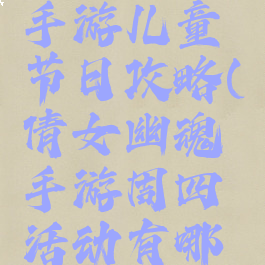 手游儿童
节日攻略(
倩女幽魂
手游周四
活动有哪